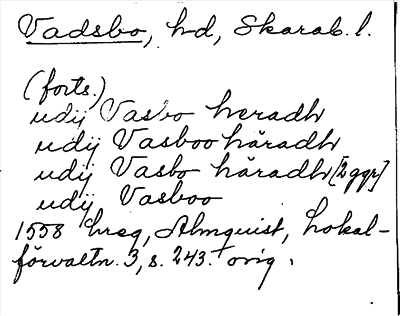 Vadsbo, hd, Skarab. l.
(forts.)
udij Vasbo heradh
udij Vasboo häradh
udij Vasbo häradh [2 ggr]
udij Vasboo
1558 hreg, Almquist, Lokal-
förvaltn. 3, s. 243. orig.